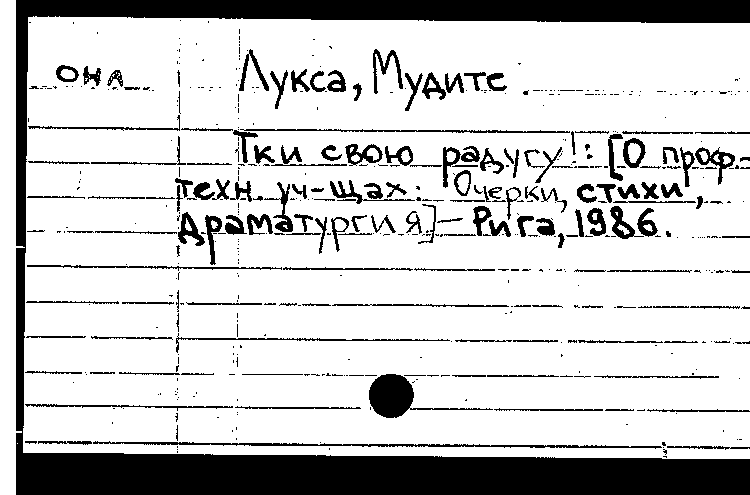 она Лукса, Мудите.
Тки свою радугу!: [О проф.-
техн. уч-щах: Очерки, стихи,
драматургия] — Рига, 1986.